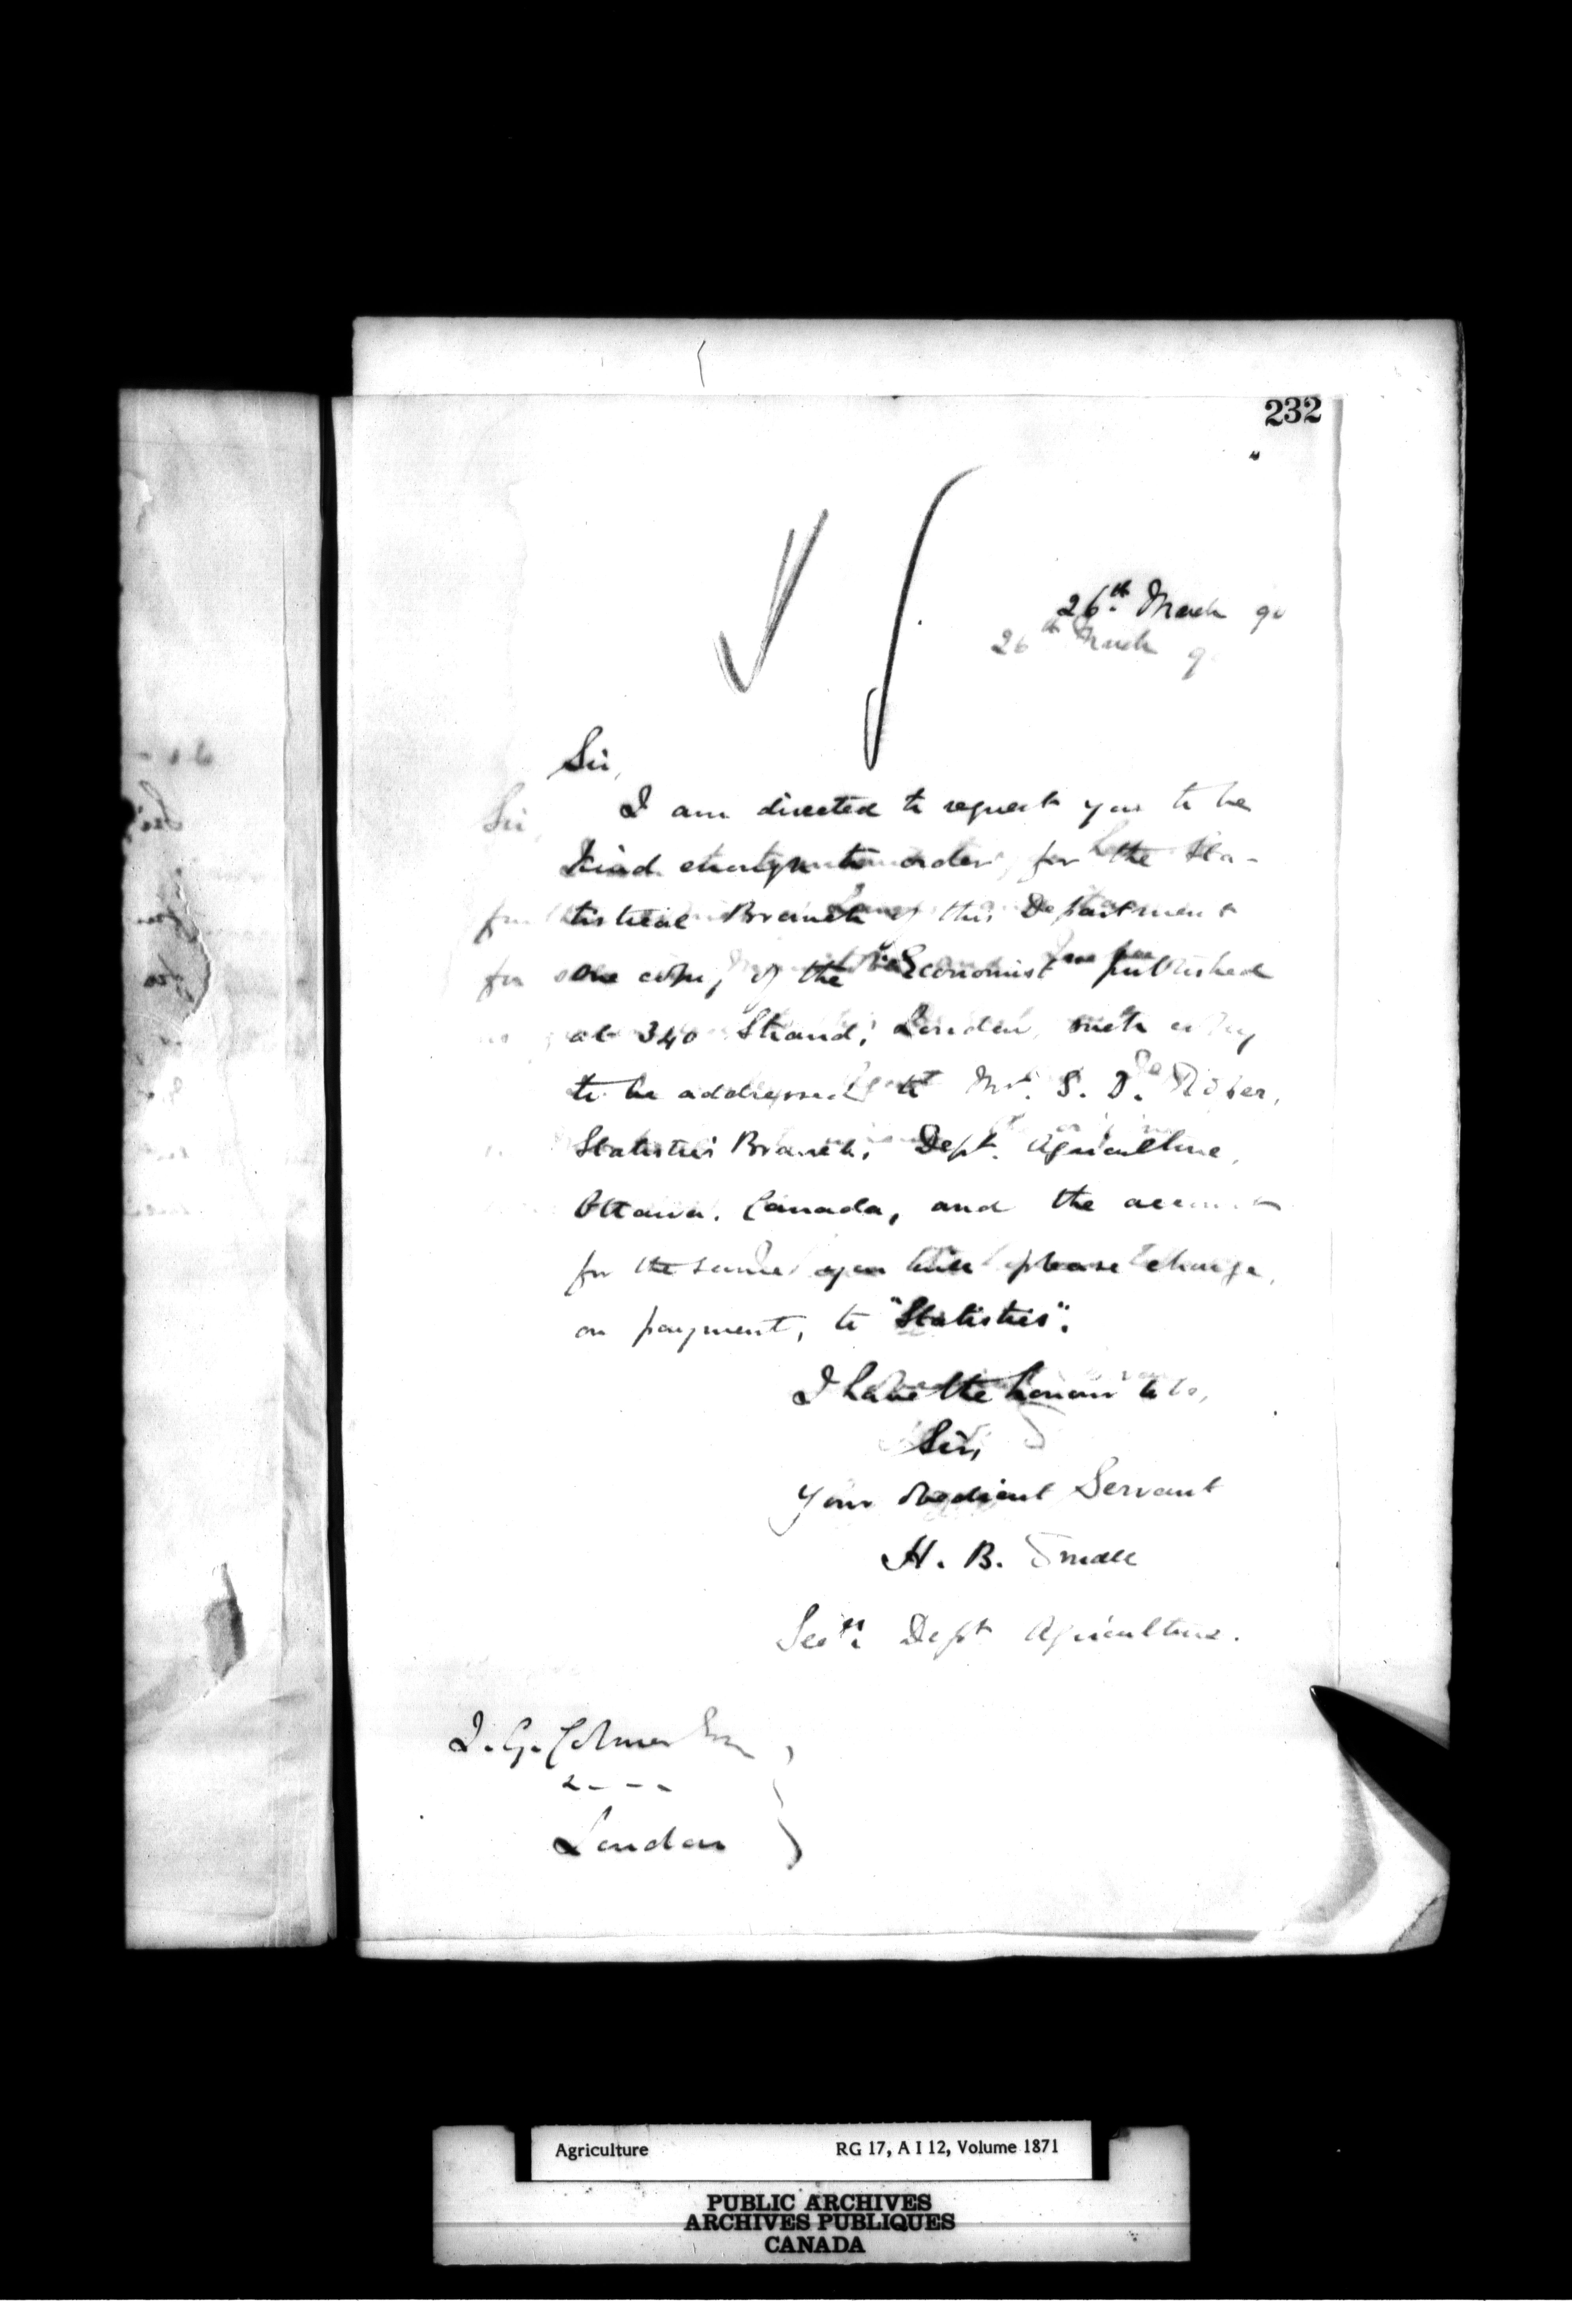 232
26th March 90
26th March 9
Sir,
Sir,
I am directed to request you to be
kind enough to order, for the Sta-
tistical Branch of this Department
one copy of the "Economist" published
at 340 Strand, London, such copy
to be addressed to Mr. S. D.
Statistics Branch, Dept. Agriculture,
Ottawa, Canada, and the account
for the same you will please charge,
on payment, to "Statistics".
I have the honour to be,
Sir,
Your obedient Servant
H. B. Small
Secy. Dept Agriculture.
J. G. Colmer Esq
London
Agriculture RG 17, A I 12, Volume 1871
PUBLIC ARCHIVES
ARCHIVES PUBLIQUES
CANADA